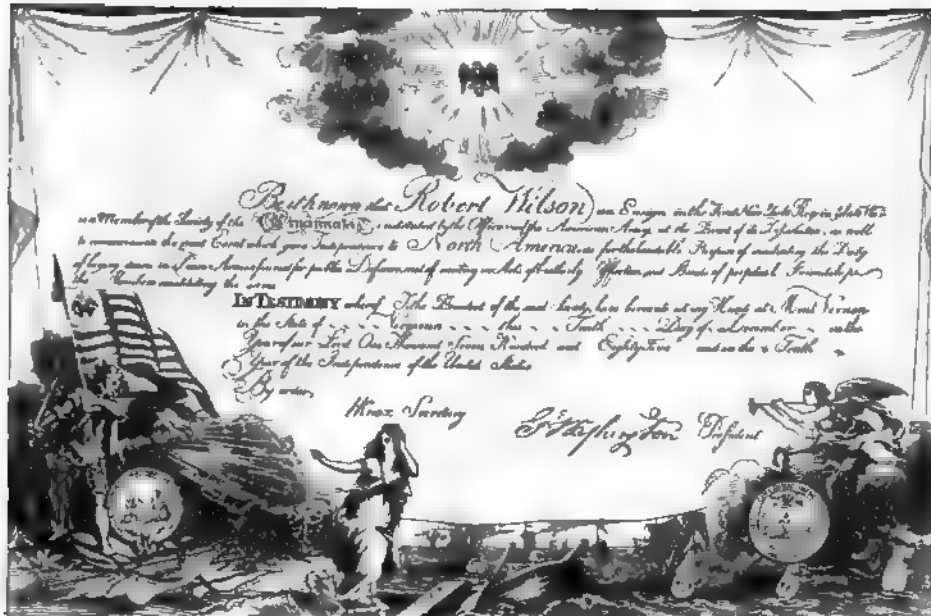 Be it known that Robert Wilson, an Ensign in the First New York Reg
is a Member of the Society of the Cincinnati; instituted by the Officers of the American Army, at the Period of its Dissolution, as well
to commemorate the great Event which gave Independence to North America, as for the laudable Purpose of inculcating the Duty
of laying down in Peace Arms assumed for public Defence, and of uniting in Acts of brotherly Affection, and Bonds of perpetual Friendship,
the Members constituting the same
IN TESTIMONY whereof I, the President of the said Society, have hereunto set my Hand at Mount Vernon
in the State of Virginia this Tenth Day of December in the
Year of our Lord One Thousand Seven Hundred and Eighty Five and in the Tenth
Year of the Independence of the United States
By order,
HKnox Secretary
G Washington President